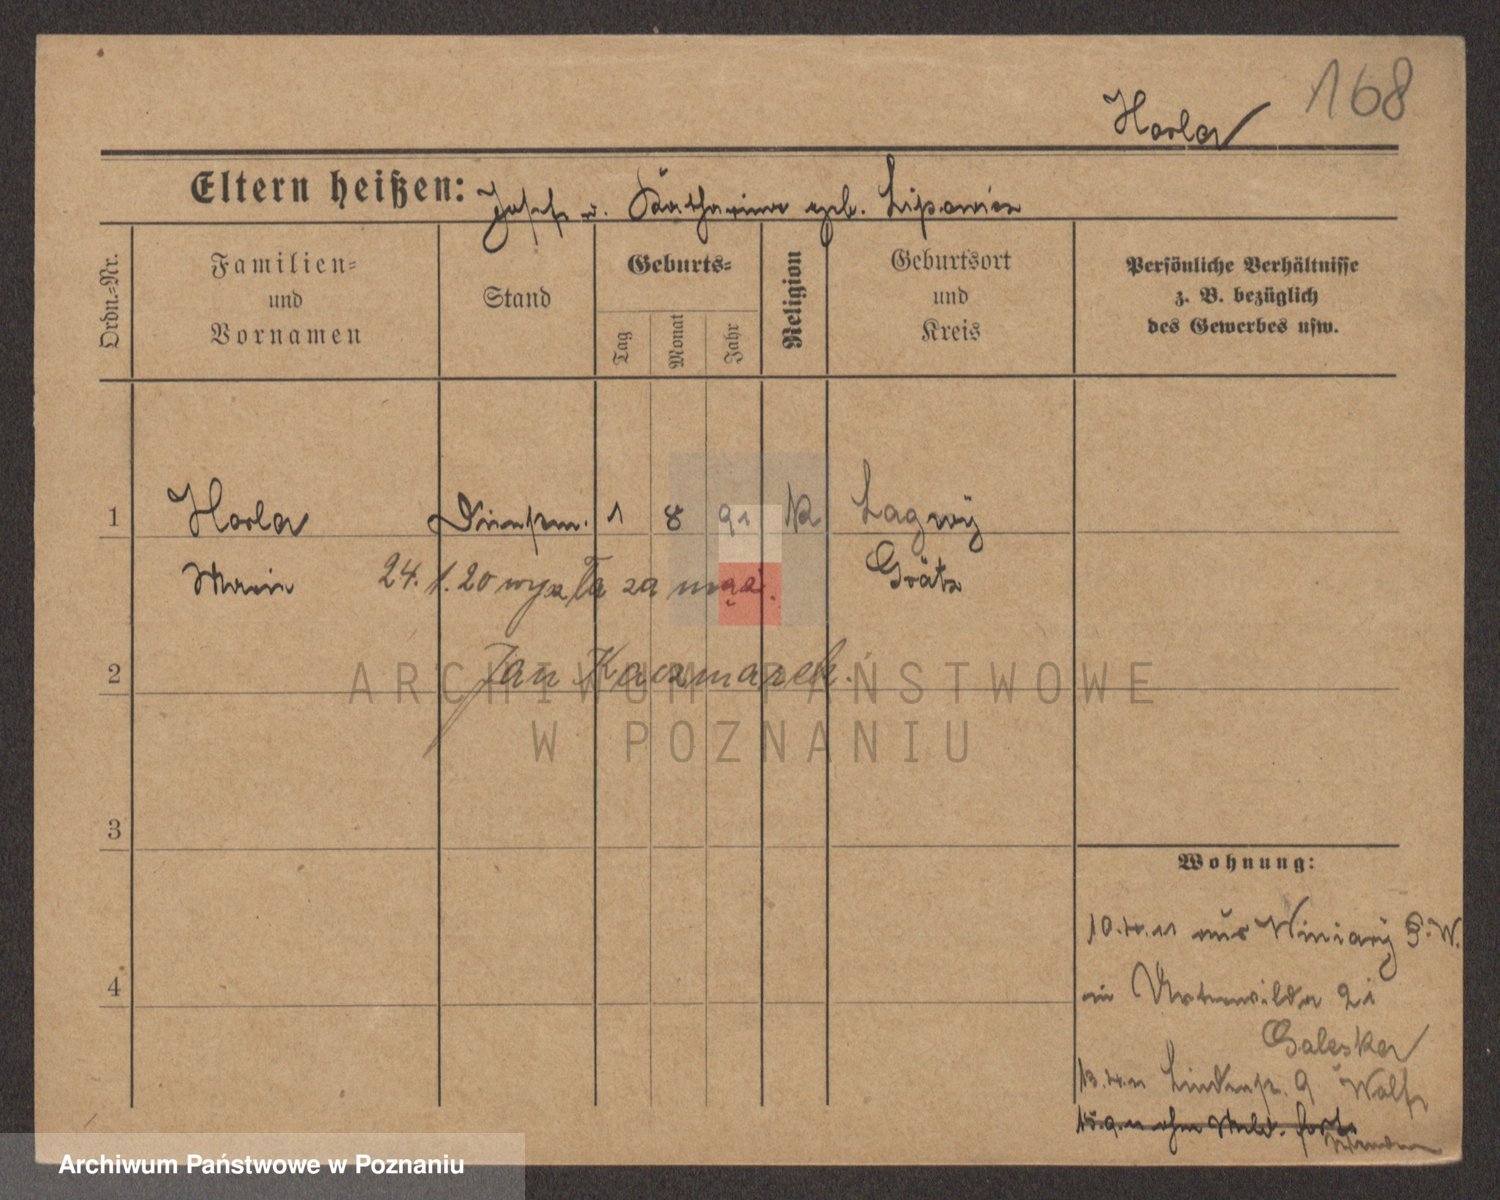 168
Horla
Eltern heißen: Josef u. Katharina geb. Lipowicz
Ordn.-Nr.
Familien-
und
Vornamen
Stand
Geburts-
Tag
Monat
Jahr
Religion
Geburtsort
und
Kreis
Persönliche Verhältnisse
z. B. bezüglich
des Gewerbes usw.
1 Horla Dienstm. 1 8 91 K Lagwÿ
Marie 24. 1. 20 wyszła za mąż. Grätz
2 Jan Kaczmarek.
ARCHIWUM PAŃSTWOWE
W POZNANIU
3
Wohnung:
10. 4. 11 aus Winiarÿ P. W.
4
in 21
Galeska
13. 4. 11 Lindenstr. 9 Wolf
15. 9. 11 ohne Meld. fort
Archiwum Państwowe w Poznaniu